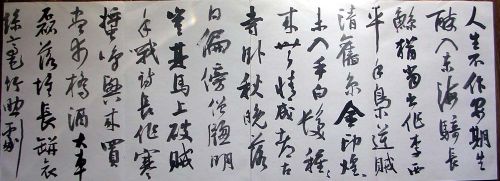 人生不作安期生
醉入东海騎長
鯨猶當出作李西
平手枭逆賊
清舊京金印煌
未入手白髮種々
来無情成都古
寺卧秋晚落
日偏傍僧牕明
豈其馬上破賊
手哦詩長作寒
螿鳴興来買
盡市橋酒大車
磊落堆長缾哀
絲豪竹助劇